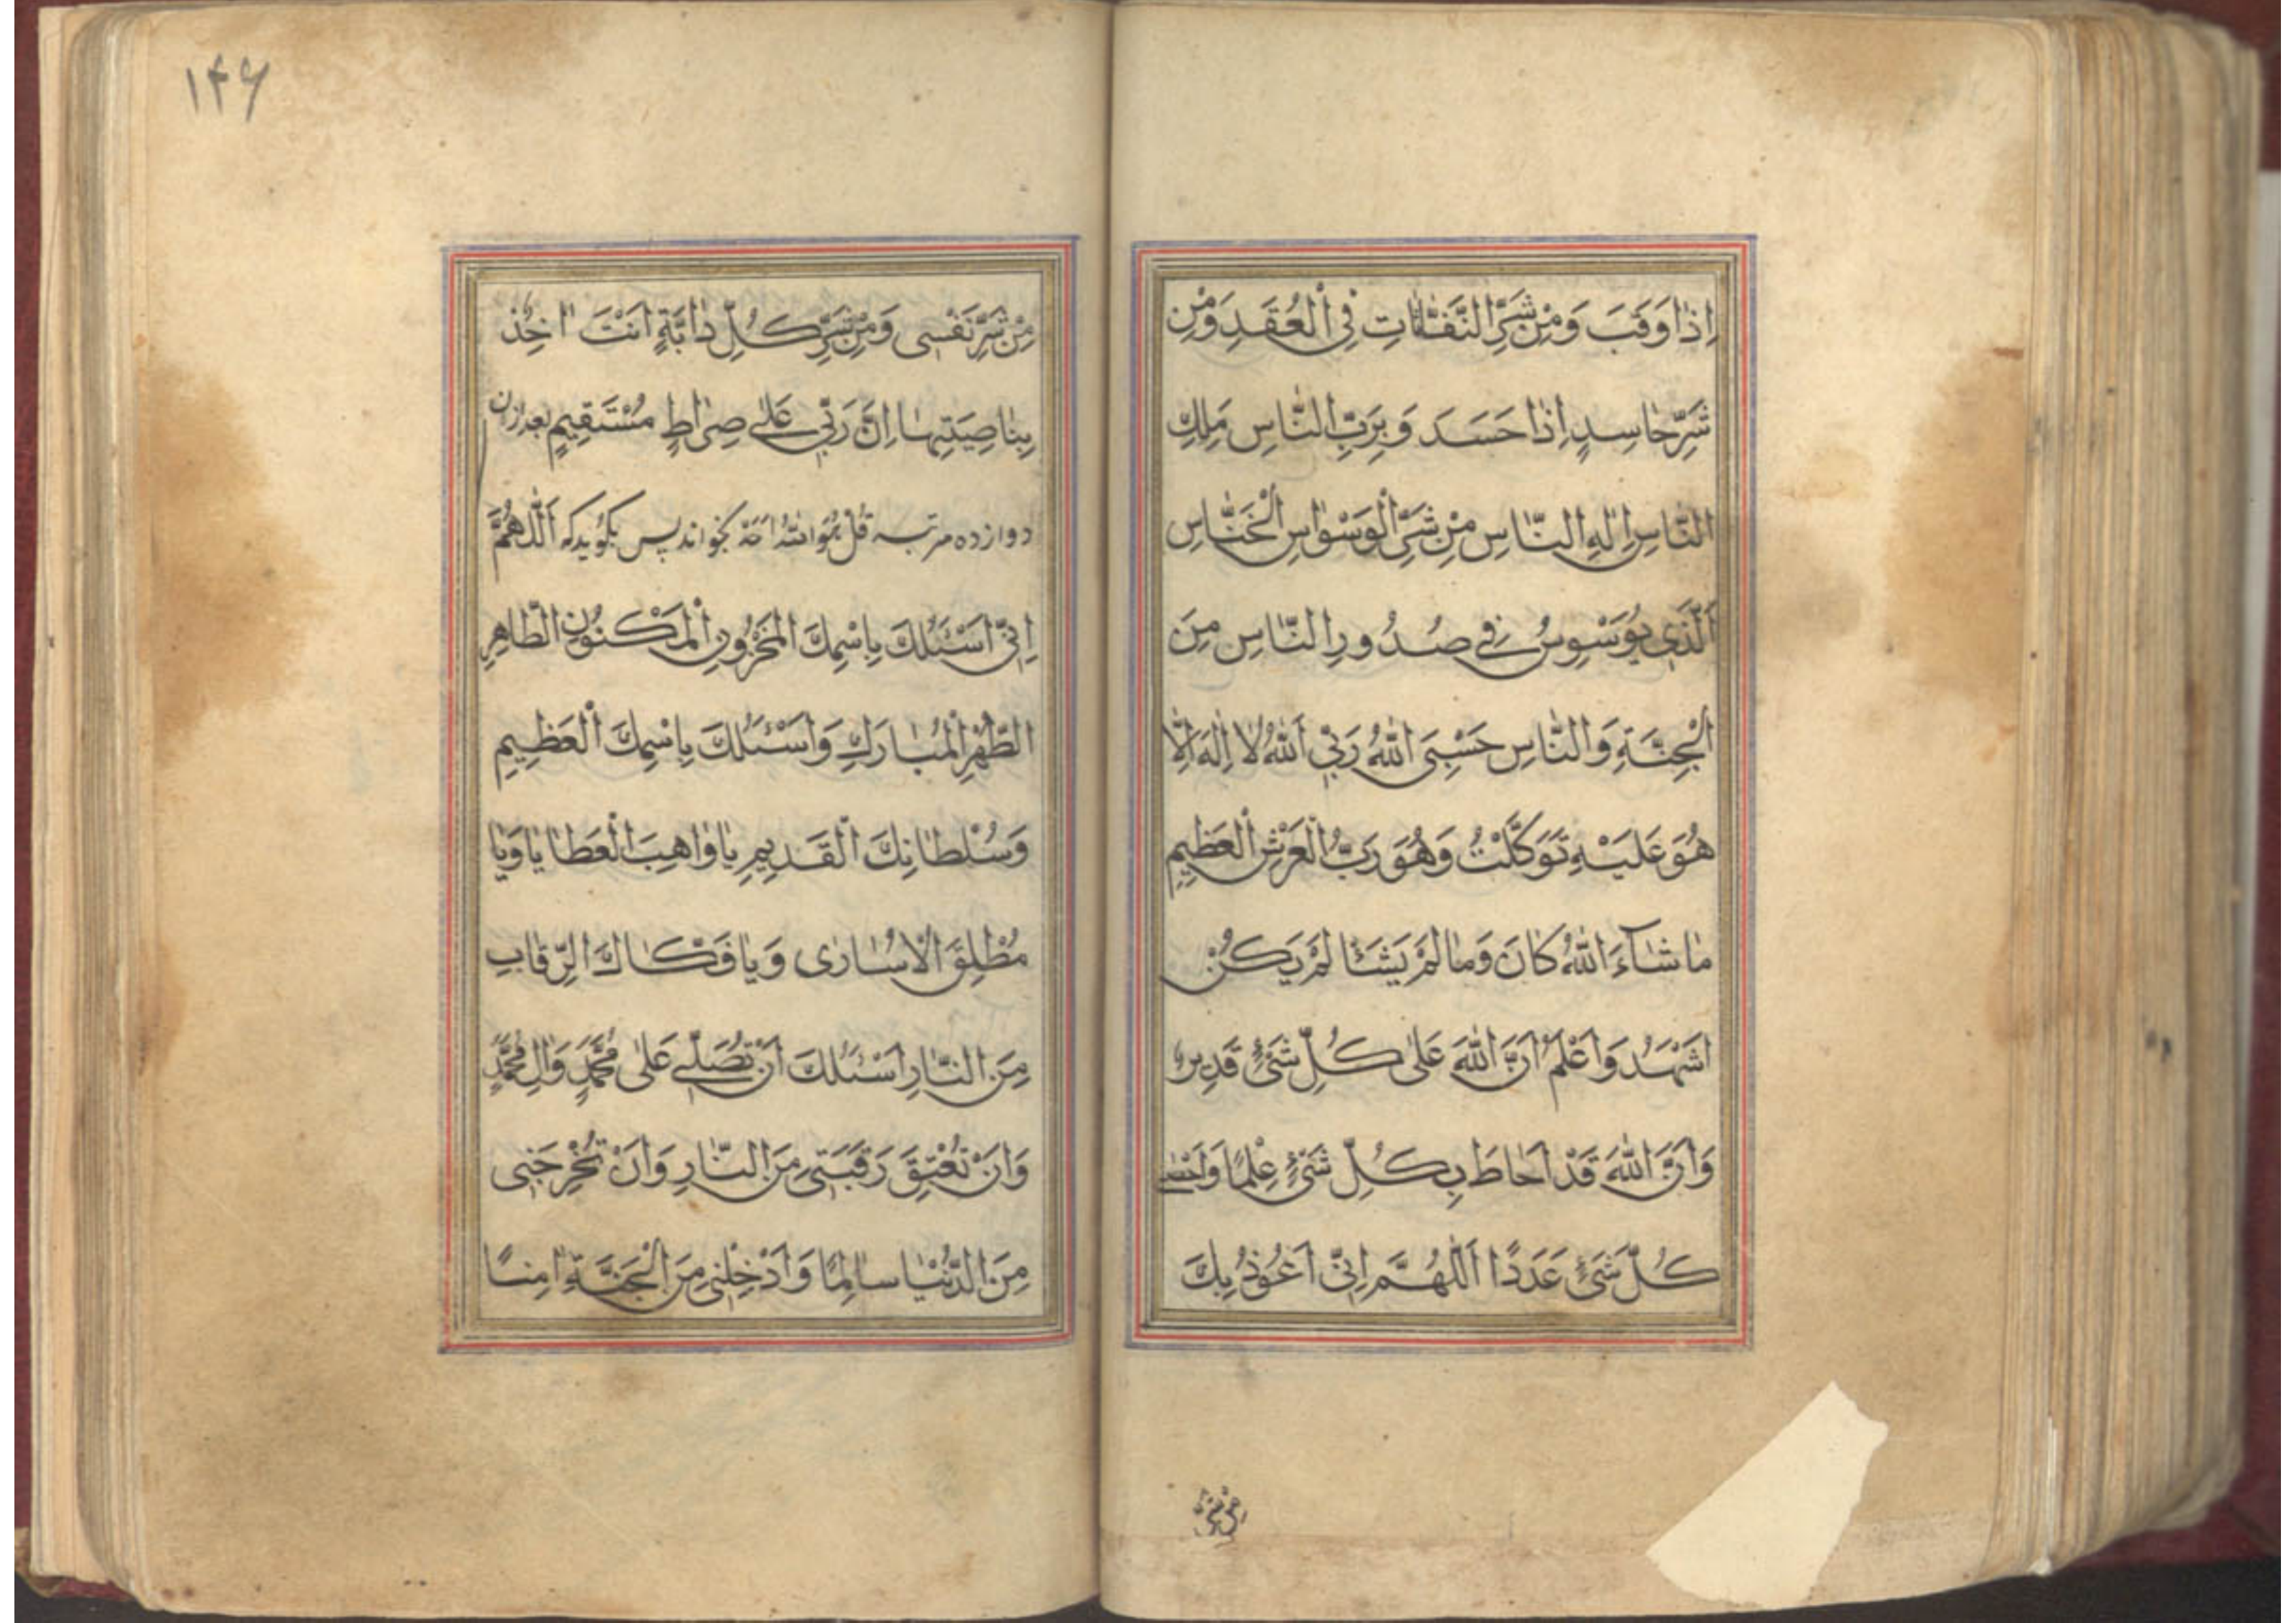 اِذٰا وَقَبَ وَ مِنْ شَرِّ النَّفّٰاثٰاتِ فِی الْعُقَدِ وَ مِنْ
شَرِّ حٰاسِدٍ اِذٰا حَسَدَ وَ بِرَبِّ النّٰاسِ مَلِكِ
النّٰاسِ اِلٰهِ النّٰاسِ مِنْ شَرِّ الْوَسْوٰاسِ الْخَنّٰاسِ
اَلَّذی یُوَسْوِسُ فی صُدُورِ النّٰاسِ مِنَ
الْجِنَّةِ وَ النّٰاسِ حَسْبِیَ اللّٰهُ رَبِّیَ اللّٰهُ لٰا اِلٰهَ اِلّٰا
هُوَ عَلَیْهِ تَوَكَّلْتُ وَهُوَ رَبُّ الْعَرْشِ الْعَظِیمِ
مٰا شٰآءَ اللّٰهُ كٰانَ وَمٰا لَمْ یَشَأْ لَمْ یَكُنْ
اَشْهَدُ وَاَعْلَمُ اَنَّ اللّٰهَ عَلٰی كُلِّ شَیْءٍ قَدِیرٌ
وَاَنَّ اللّٰهَ قَدْ اَحٰاطَ بِكُلِّ شَیْءٍ عِلْمًا وَاَحْصٰی
كُلَّ شَیْءٍ عَدَدًا اَللّٰهُمَّ اِنّی اَعُوذُ بِكَ
مِنْ شَرِّ
۱۴۶
مِنْ شَرِّ نَفْسی وَ مِنْ شَرِّ كُلِّ دٰابَّةٍ اَنْتَ اٰخِذٌ
بِنٰاصِیَتِهٰا اِنَّ رَبّی عَلٰی صِرٰاطٍ مُسْتَقِیمٍ بعد ازان
دوازده مرتبه قُلْ هُوَ اللّٰهُ اَحَدٌ بخواند پس بگوید که اَللّٰهُمَّ
اِنّی اَسْئَلُكَ بِاسْمِكَ الْمَخْزُونِ الْمَكْنُونِ الطّٰاهِرِ
الطُّهْرِ الْمُبٰارَكِ وَاَسْئَلُكَ بِاسْمِكَ الْعَظِیمِ
وَسُلْطٰانِكَ الْقَدِیمِ یٰا وٰاهِبَ الْعَطٰایٰا وَیٰا
مُطْلِقَ الْاُسٰارٰی وَیٰا فَكّٰاكَ الرِّقٰابِ
مِنَ النّٰارِ اَسْئَلُكَ اَنْ تُصَلِّیَ عَلٰی مُحَمَّدٍ وَاٰلِ مُحَمَّدٍ
وَاَنْ تُعْتِقَ رَقَبَتی مِنَ النّٰارِ وَاَنْ تُخْرِجَنی
مِنَ الدُّنْیٰا سٰالِمًا وَاَدْخِلْنی مِنَ الْجَنَّةِ اٰمِنًا